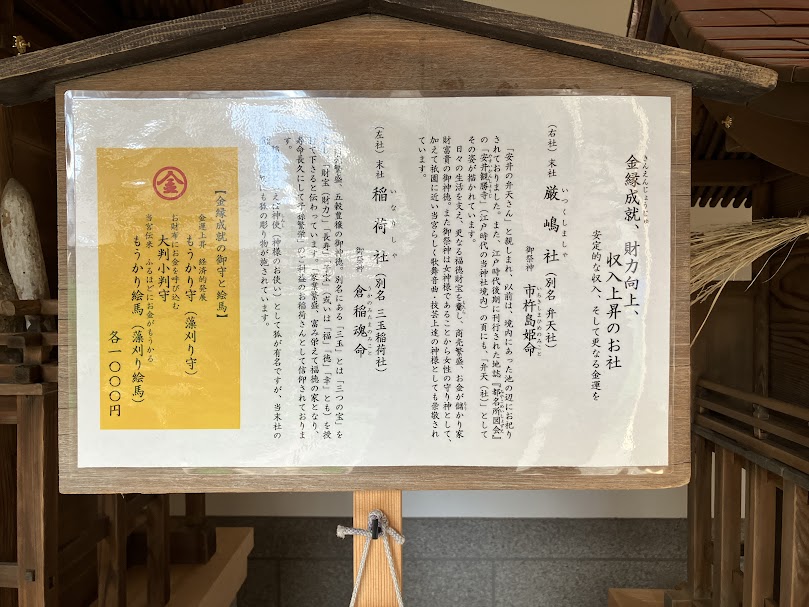 きんえんじょうじゅ
金縁成就、財力向上、
収入上昇のお社
安定的な収入、そして更なる金運を
（右社）末社
いつくしましゃ
厳嶋社（別名 弁天社）
御祭神
いちきしまひめのみこと
市杵島姫命
「安井の弁天さん」と親しまれ、以前は、境内にあった池の辺にお祀り
されておりました。また、江戸時代後期に刊行された地誌『都名所図会』
の「安井観勝寺」（江戸時代の当神社境内）の頁にも、「弁天（社）」として
その姿が描かれています。
日々の生活を支え、更なる福徳財宝を齎し、商売繁盛、お金が儲かり家
財富貴の御神徳。また御祭神は女神様であることから女性の守り神として、
加えて祇園に近い当宮らしく歌舞音曲・技芸上達の神様としても崇敬され
ています。
（左社）末社
いなりしゃ
稲荷社（別名 三玉稲荷社）
御祭神
うかのみたまのみこと
倉稲魂命
繁盛、五穀豊穣の御神徳。別名にある「三玉」とは「三つの宝」を
し「財宝（財力）」「長寿」「子宝」（或いは「福」「徳」「幸」とも）を授
けて下さると伝わっています。「家業繁盛、富み栄えて福徳の家となり、
寿命長久にして子孫繁栄」のご利益のお稲荷さんとして信仰されておりま
す。
えは神使（神様のお使い）として狐が有名ですが、当末社の
も狐の彫り物が施されています。
金
【金縁成就の御守と絵馬】
金運上昇 経済的発展
もうかり守（藻刈り守）
お財布にお金を呼び込む
大判小判守
当宮伝来 ふるほどにお金がもうかる
もうかり絵馬（藻刈り絵馬）
各一〇〇〇円